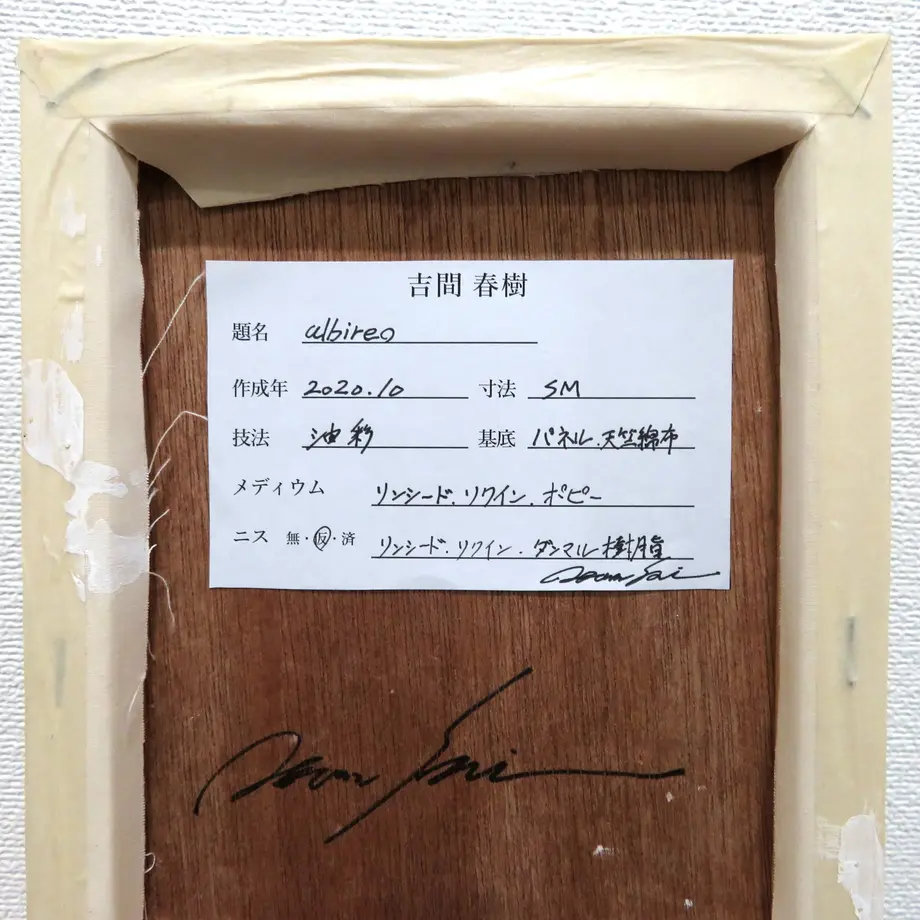 吉間 春樹
題名 albireo
作成年 2020.10 寸法 SM
技法 油彩 基底 パネル.天竺綿布
メディウム リンシード.リクイン.ポピー
ニス 無・反・済 リンシード.リクイン.ダンマル樹脂